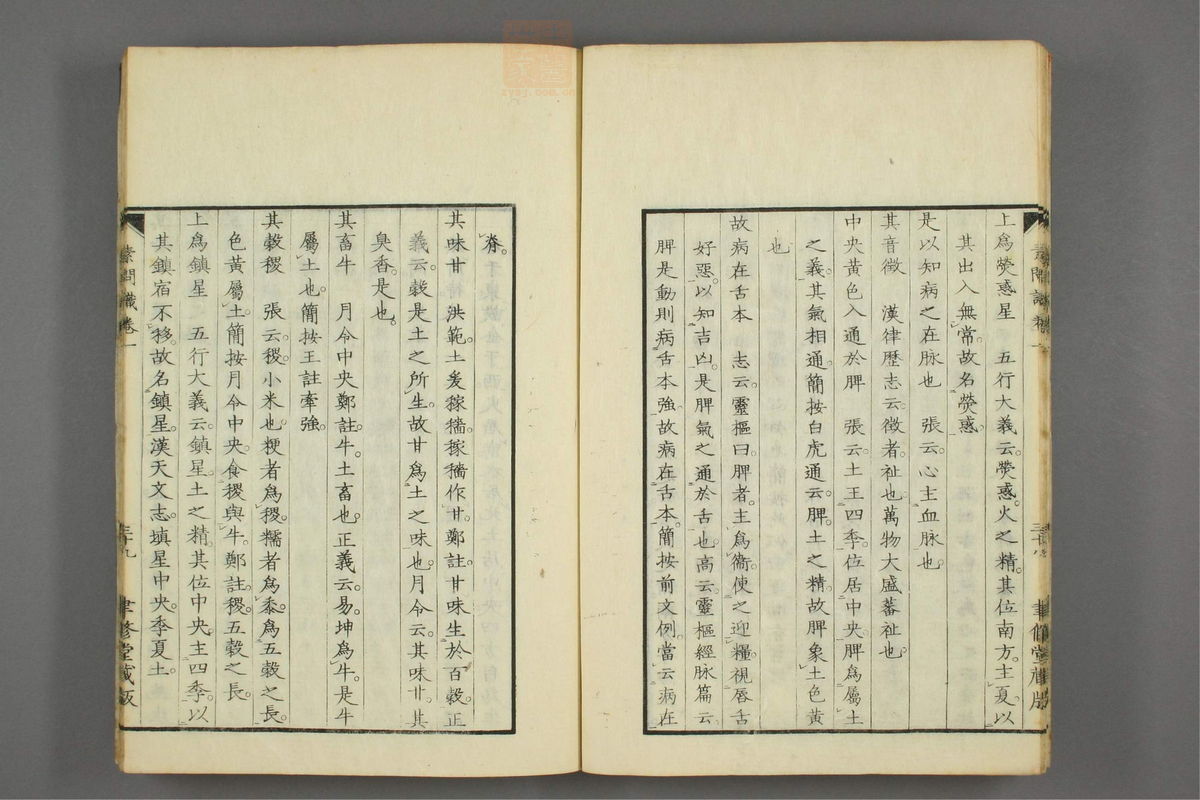 上爲熒惑星　五行大義云。熒惑。火之精。其位南方。主夏。以
其出入無常。故名熒惑。
是以知病之在脉也　張云。心主血脉也
其音徵　漢律歴志云。徵者。祉也。萬物大盛蕃祉也
中央黄色入通於脾　張云。土王四季。位居中央。脾爲屬土
之義。其氣相通。簡按白虎通云。脾。土之精。故脾象土色黄
也
故病在舌本　志云。靈樞曰。脾者。主爲衞。使之迎糧。視唇舌
好惡。以知吉凶。是脾氣之通於舌也。高云。靈樞經脉篇云
脾是動則病舌本強。故病在舌本。簡按前文例。當云病在
脊。
其味甘　洪範。土爰稼穡。稼穡作甘。鄭註。甘味生於百穀。正
義云。穀是土之所生。故甘爲土之味也。月令云。其味甘。其
臭香。是也。
其畜牛　月令中央。鄭註。牛。土畜也。正義云。易。坤爲牛。是牛
屬土也。簡按王註牽強。
其穀稷　張云。稷。小米也。粳者爲稷。糯者爲黍。爲五穀之長。
色黄屬土。簡按月令中央。食稷與牛。鄭註。稷。五穀之長。
上爲鎮星　五行大義云。鎮星。土之精。其位中央。主四季。以
其鎮宿不移。故名鎮星。漢天文志。填星中央。季夏土。
素問識卷一
三十九
聿修堂藏版
zysj.com.cn